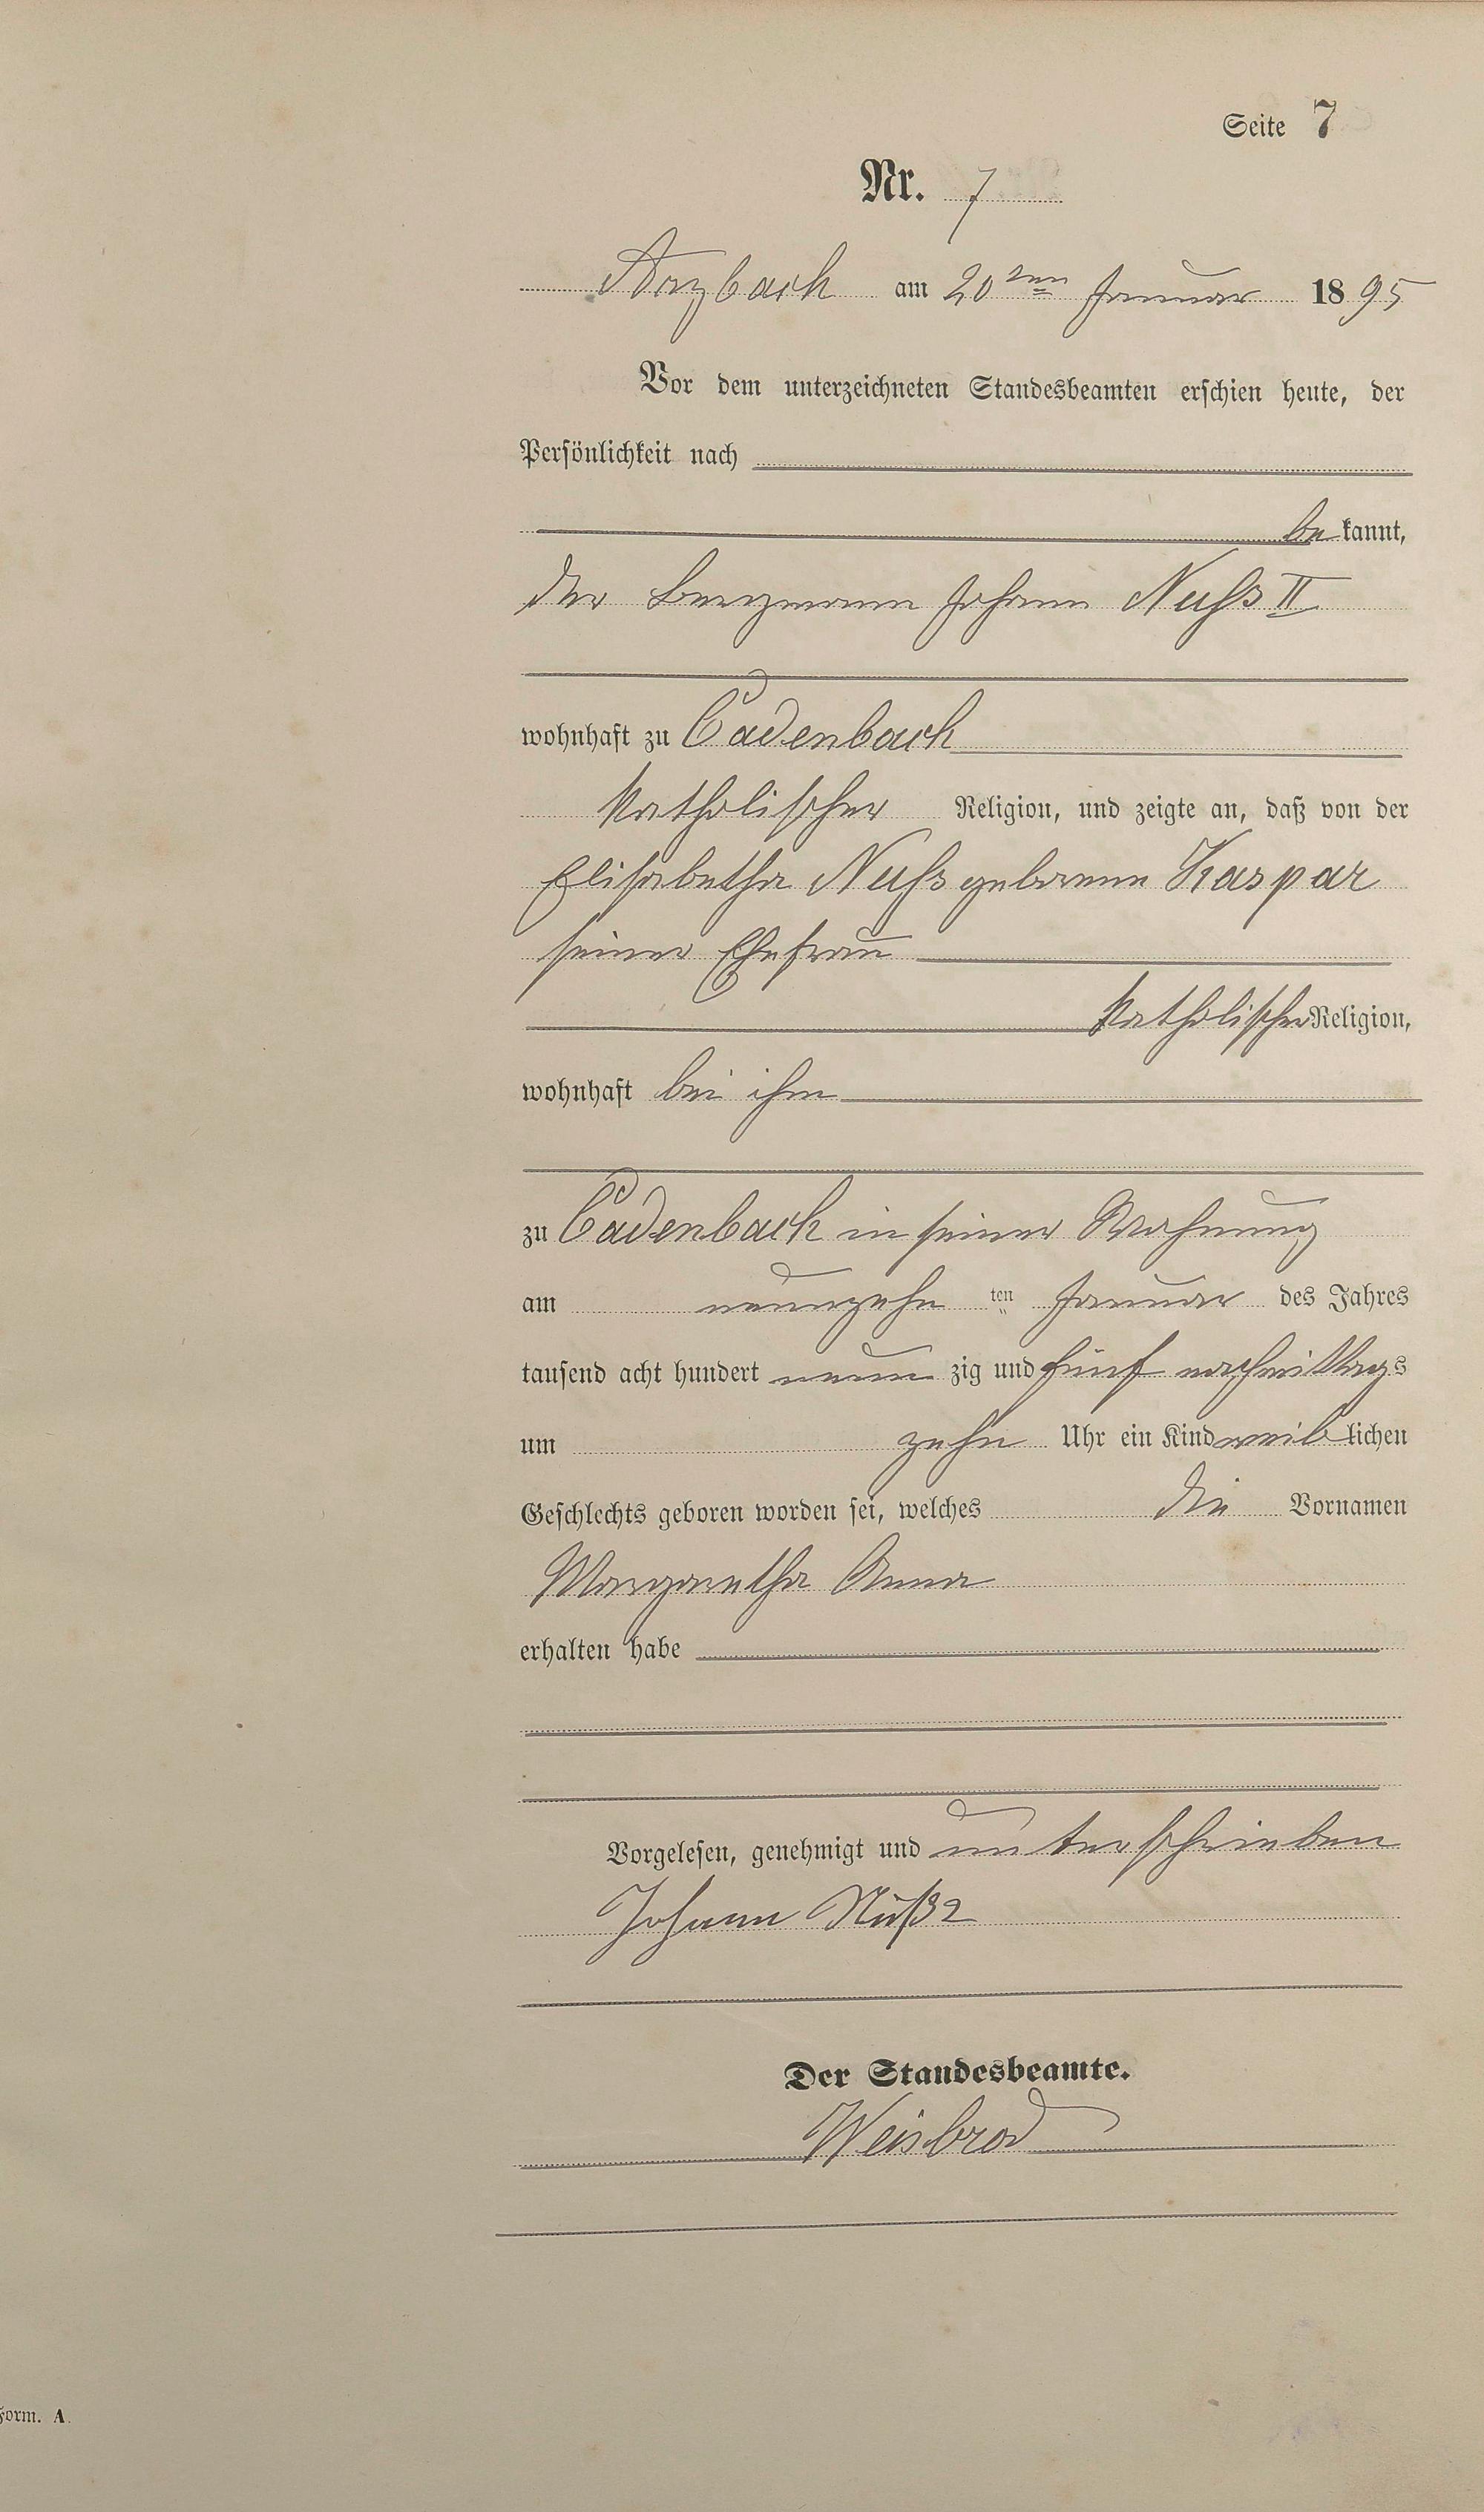 Seite 7
Nr. 7
Arzbach am 20ten Januar 1895
Vor dem unterzeichneten Standesbeamten erschien heute, der
Persönlichkeit nach
be kannt,
der Bergmann Johann Nuss II
wohnhaft zu Cadenbach
katholischer Religion, und zeigte an, daß von der
Elisabetha Nuss geborene Kaspar
seiner Ehefrau
katholischer Religion,
wohnhaft bei ihm
zu Cadenbach in seiner Wohnung
am neunzehn ten Januar des Jahres
tausend acht hundert neun zig und fünf nachmittags
um zehn Uhr ein Kind weib lichen
Geschlechts geboren worden sei, welches die Vornamen
Margaretha Anna
erhalten habe
Vorgelesen, genehmigt und unterschrieben
Johann Nuß 2
Der Standesbeamte.
Weisbrod
Form. A.